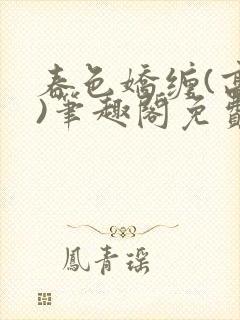 春色嬌纏(高
)筆趣閣免費
鳳青瑶